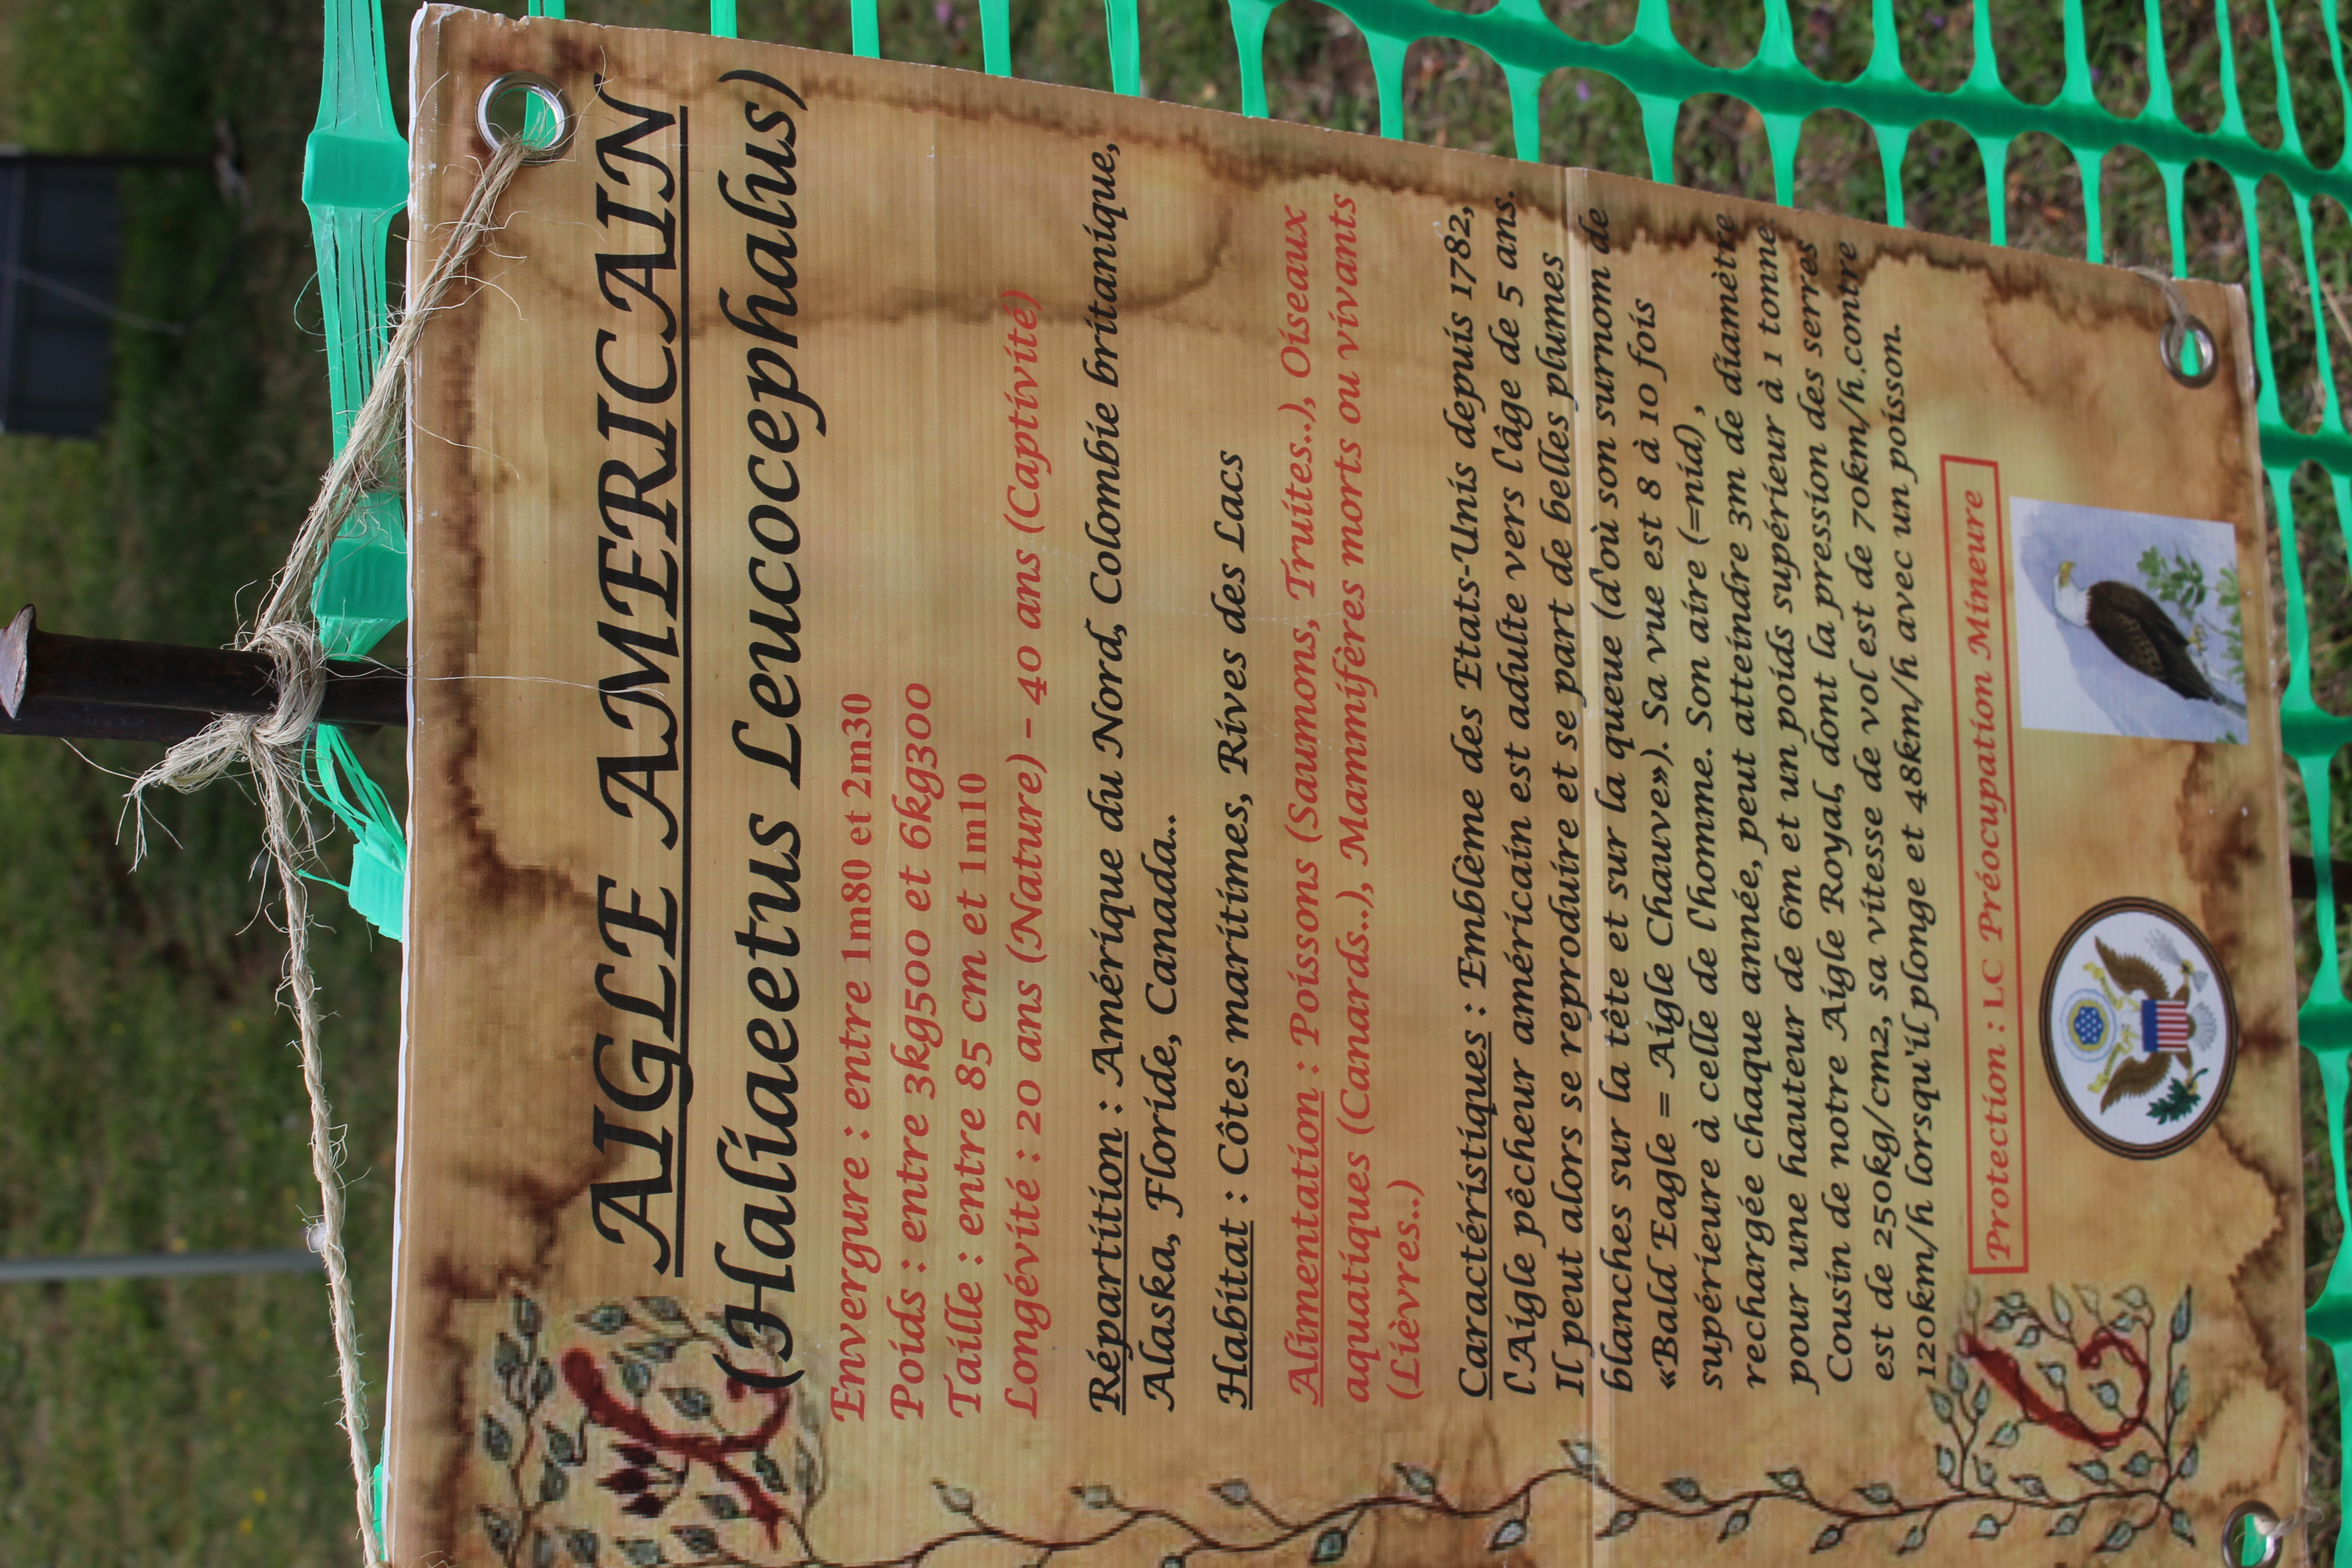 AIGLE AMERICAIN
(Haliaeetus Leucocephalus)
Envergure : entre 1m80 et 2m30
Poids : entre 3kg500 et 6kg300
Taille : entre 85 cm et 1m10
Longévité : 20 ans (Nature) – 40 ans (Captivité)
Répartition : Amérique du Nord, Colombie britanique,
Alaska, Floride, Canada..
Habitat : Côtes maritimes, Rives des Lacs
Alimentation : Poissons (Saumons, Truites..), Oiseaux
aquatiques (Canards..), Mammifères morts ou vivants
(Lièvres..)
Caractéristiques : Emblème des Etats-Unis depuis 1782,
l'Aigle pêcheur américain est adulte vers l'âge de 5 ans.
Il peut alors se reproduire et se part de belles plumes
blanches sur la tête et sur la queue (d'où son surnom de
«Bald Eagle = Aigle Chauve»). Sa vue est 8 à 10 fois
supérieure à celle de l'homme. Son aire (=nid) ,
rechargée chaque année, peut atteindre 3m de diamètre
pour une hauteur de 6m et un poids supérieur à 1 tonne
Cousin de notre Aigle Royal, dont la pression des serres
est de 250kg/cm2, sa vitesse de vol est de 70km/h.contre
120km/h lorsqu'il plonge et 48km/h avec un poisson.
Protection : LC Préocupation Mineure